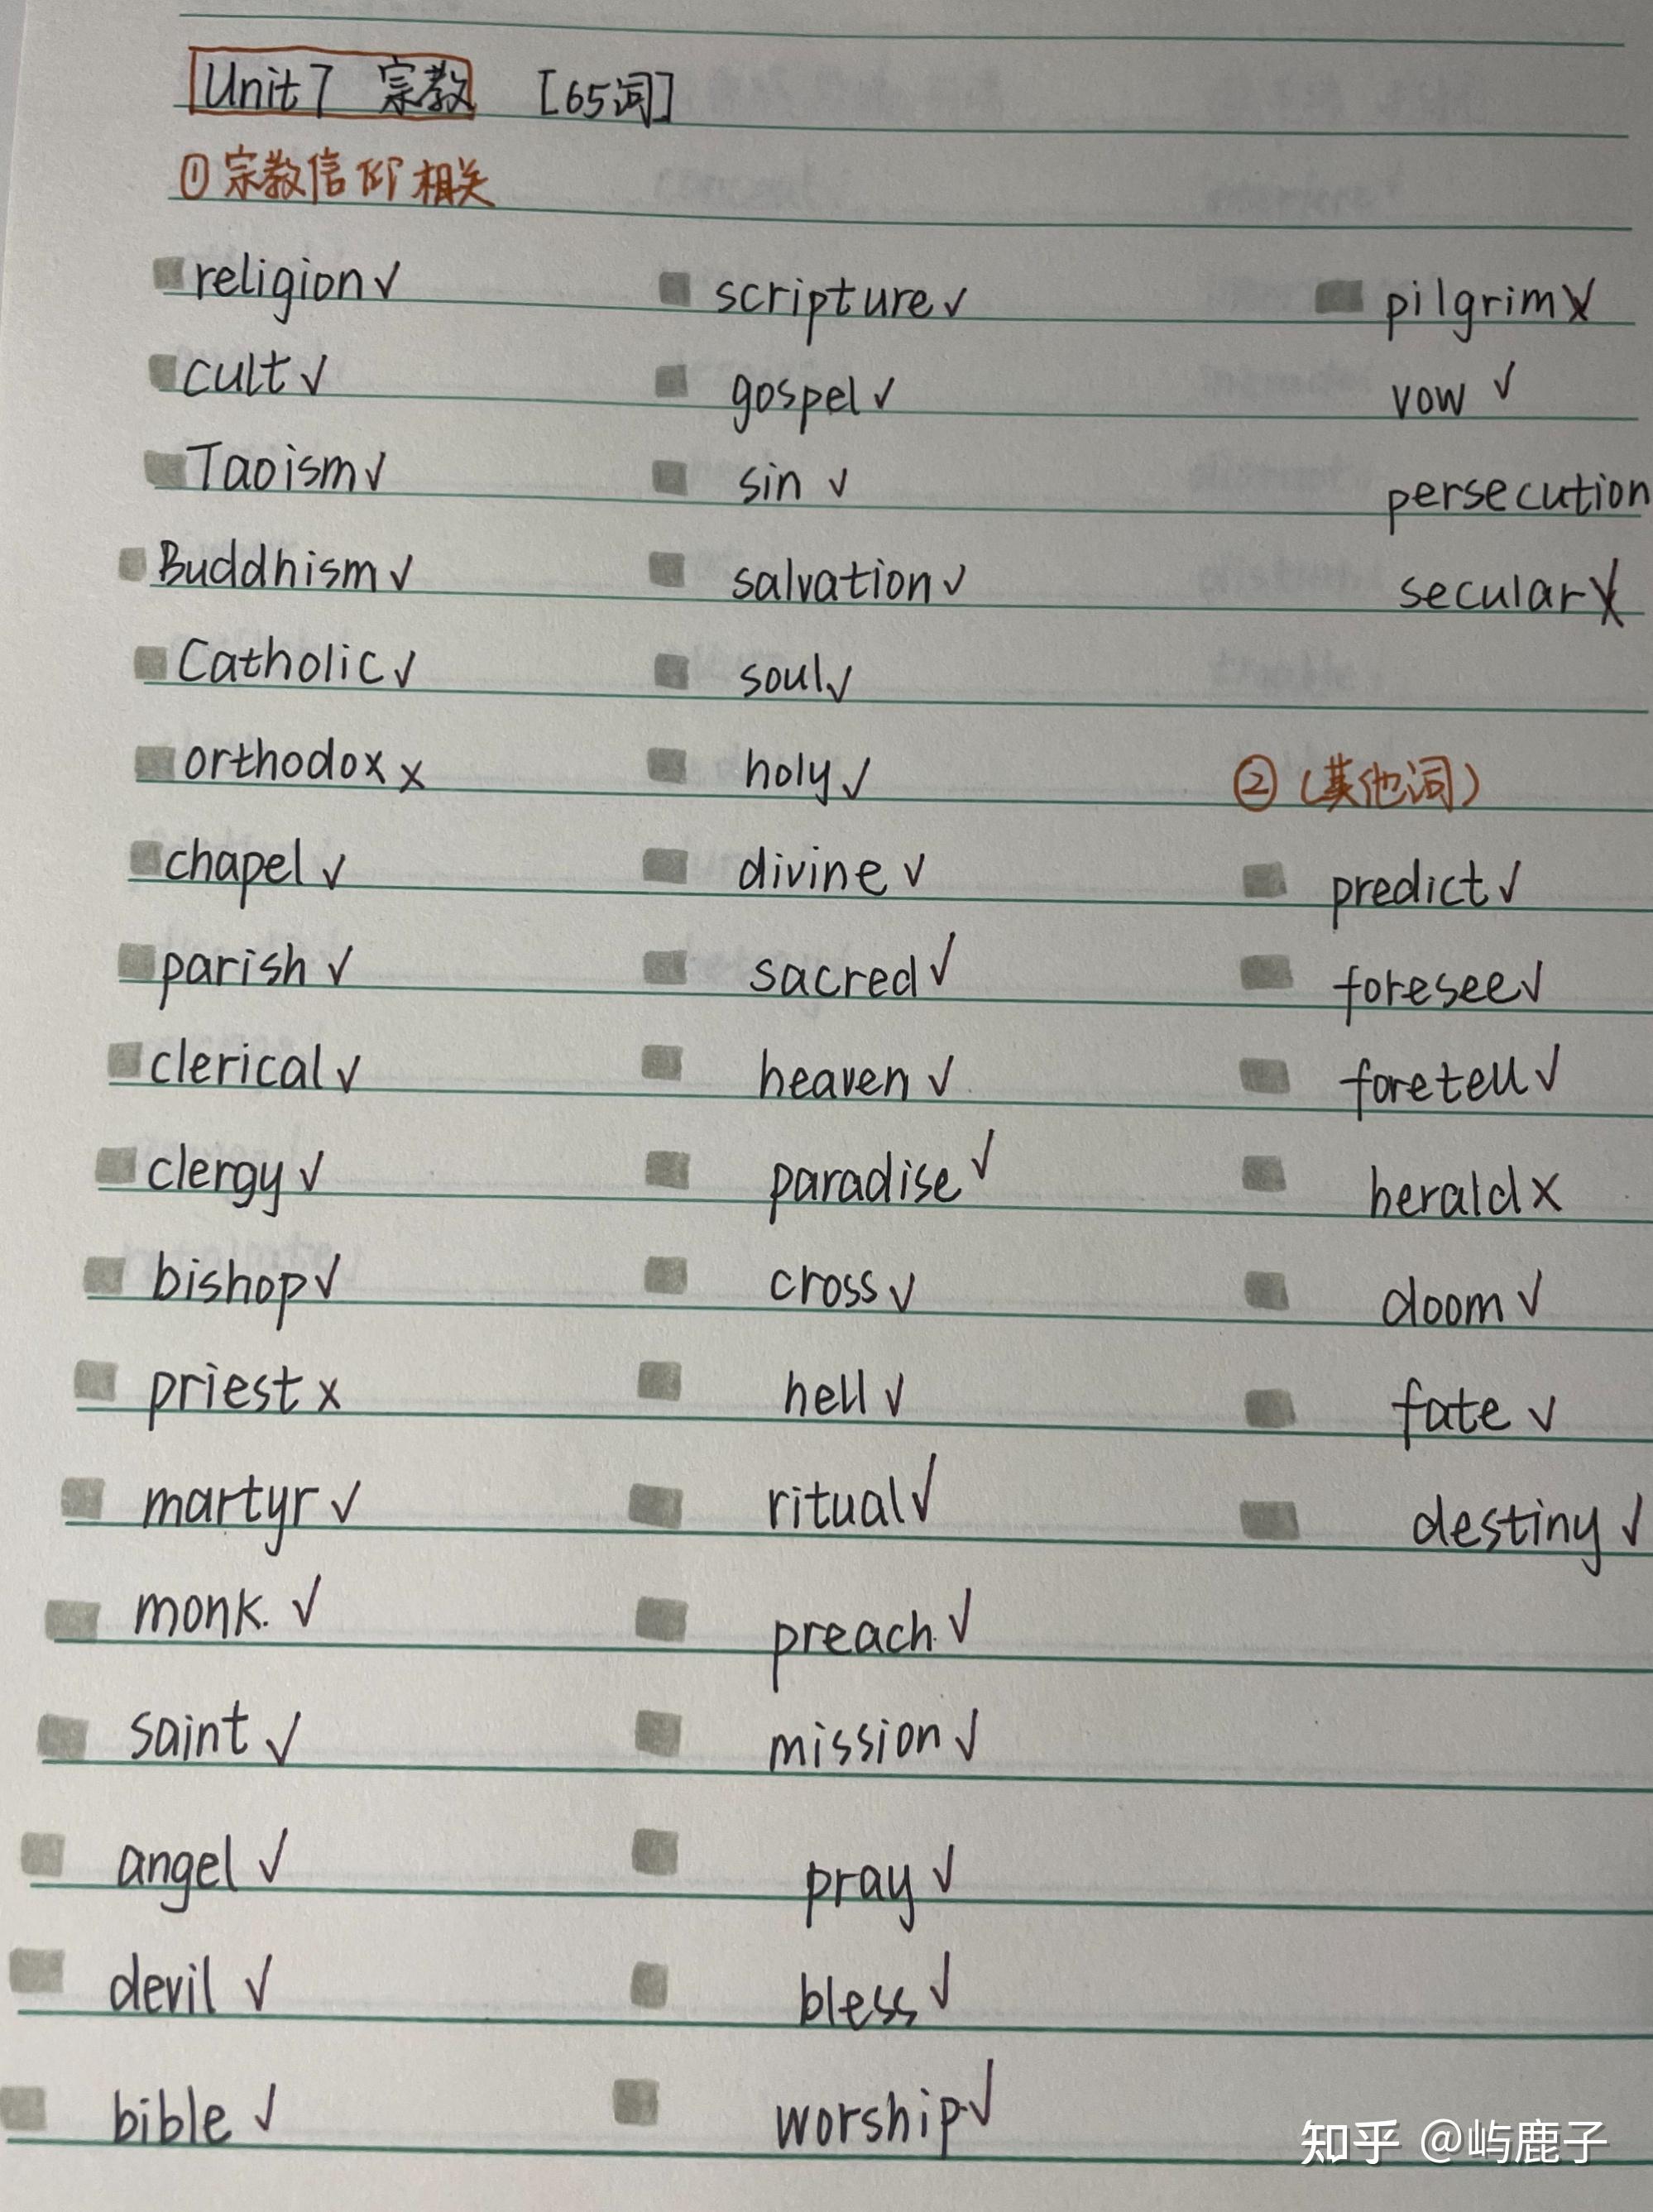 Unit7 宗教 [65词]
①宗教信仰相关
religion√
cult√
Taoism√
Buddhism√
Catholic√
orthodox x
chapel√
parish√
clerical√
clergy√
bishop√
priest x
martyr√
monk. √
saint√
angel√
devil√
bible√
scripture√
gospel√
sin √
salvation√
soul√
holy√
divine√
sacred√
heaven√
paradise√
cross√
hell√
ritual√
preach.√
mission√
pray√
bless√
worship√
pilgrim x
vow √
persecution
secular x
②(其他词)
predict√
foresee√
foretell√
herald x
doom√
fate√
destiny√
知乎 @屿鹿子